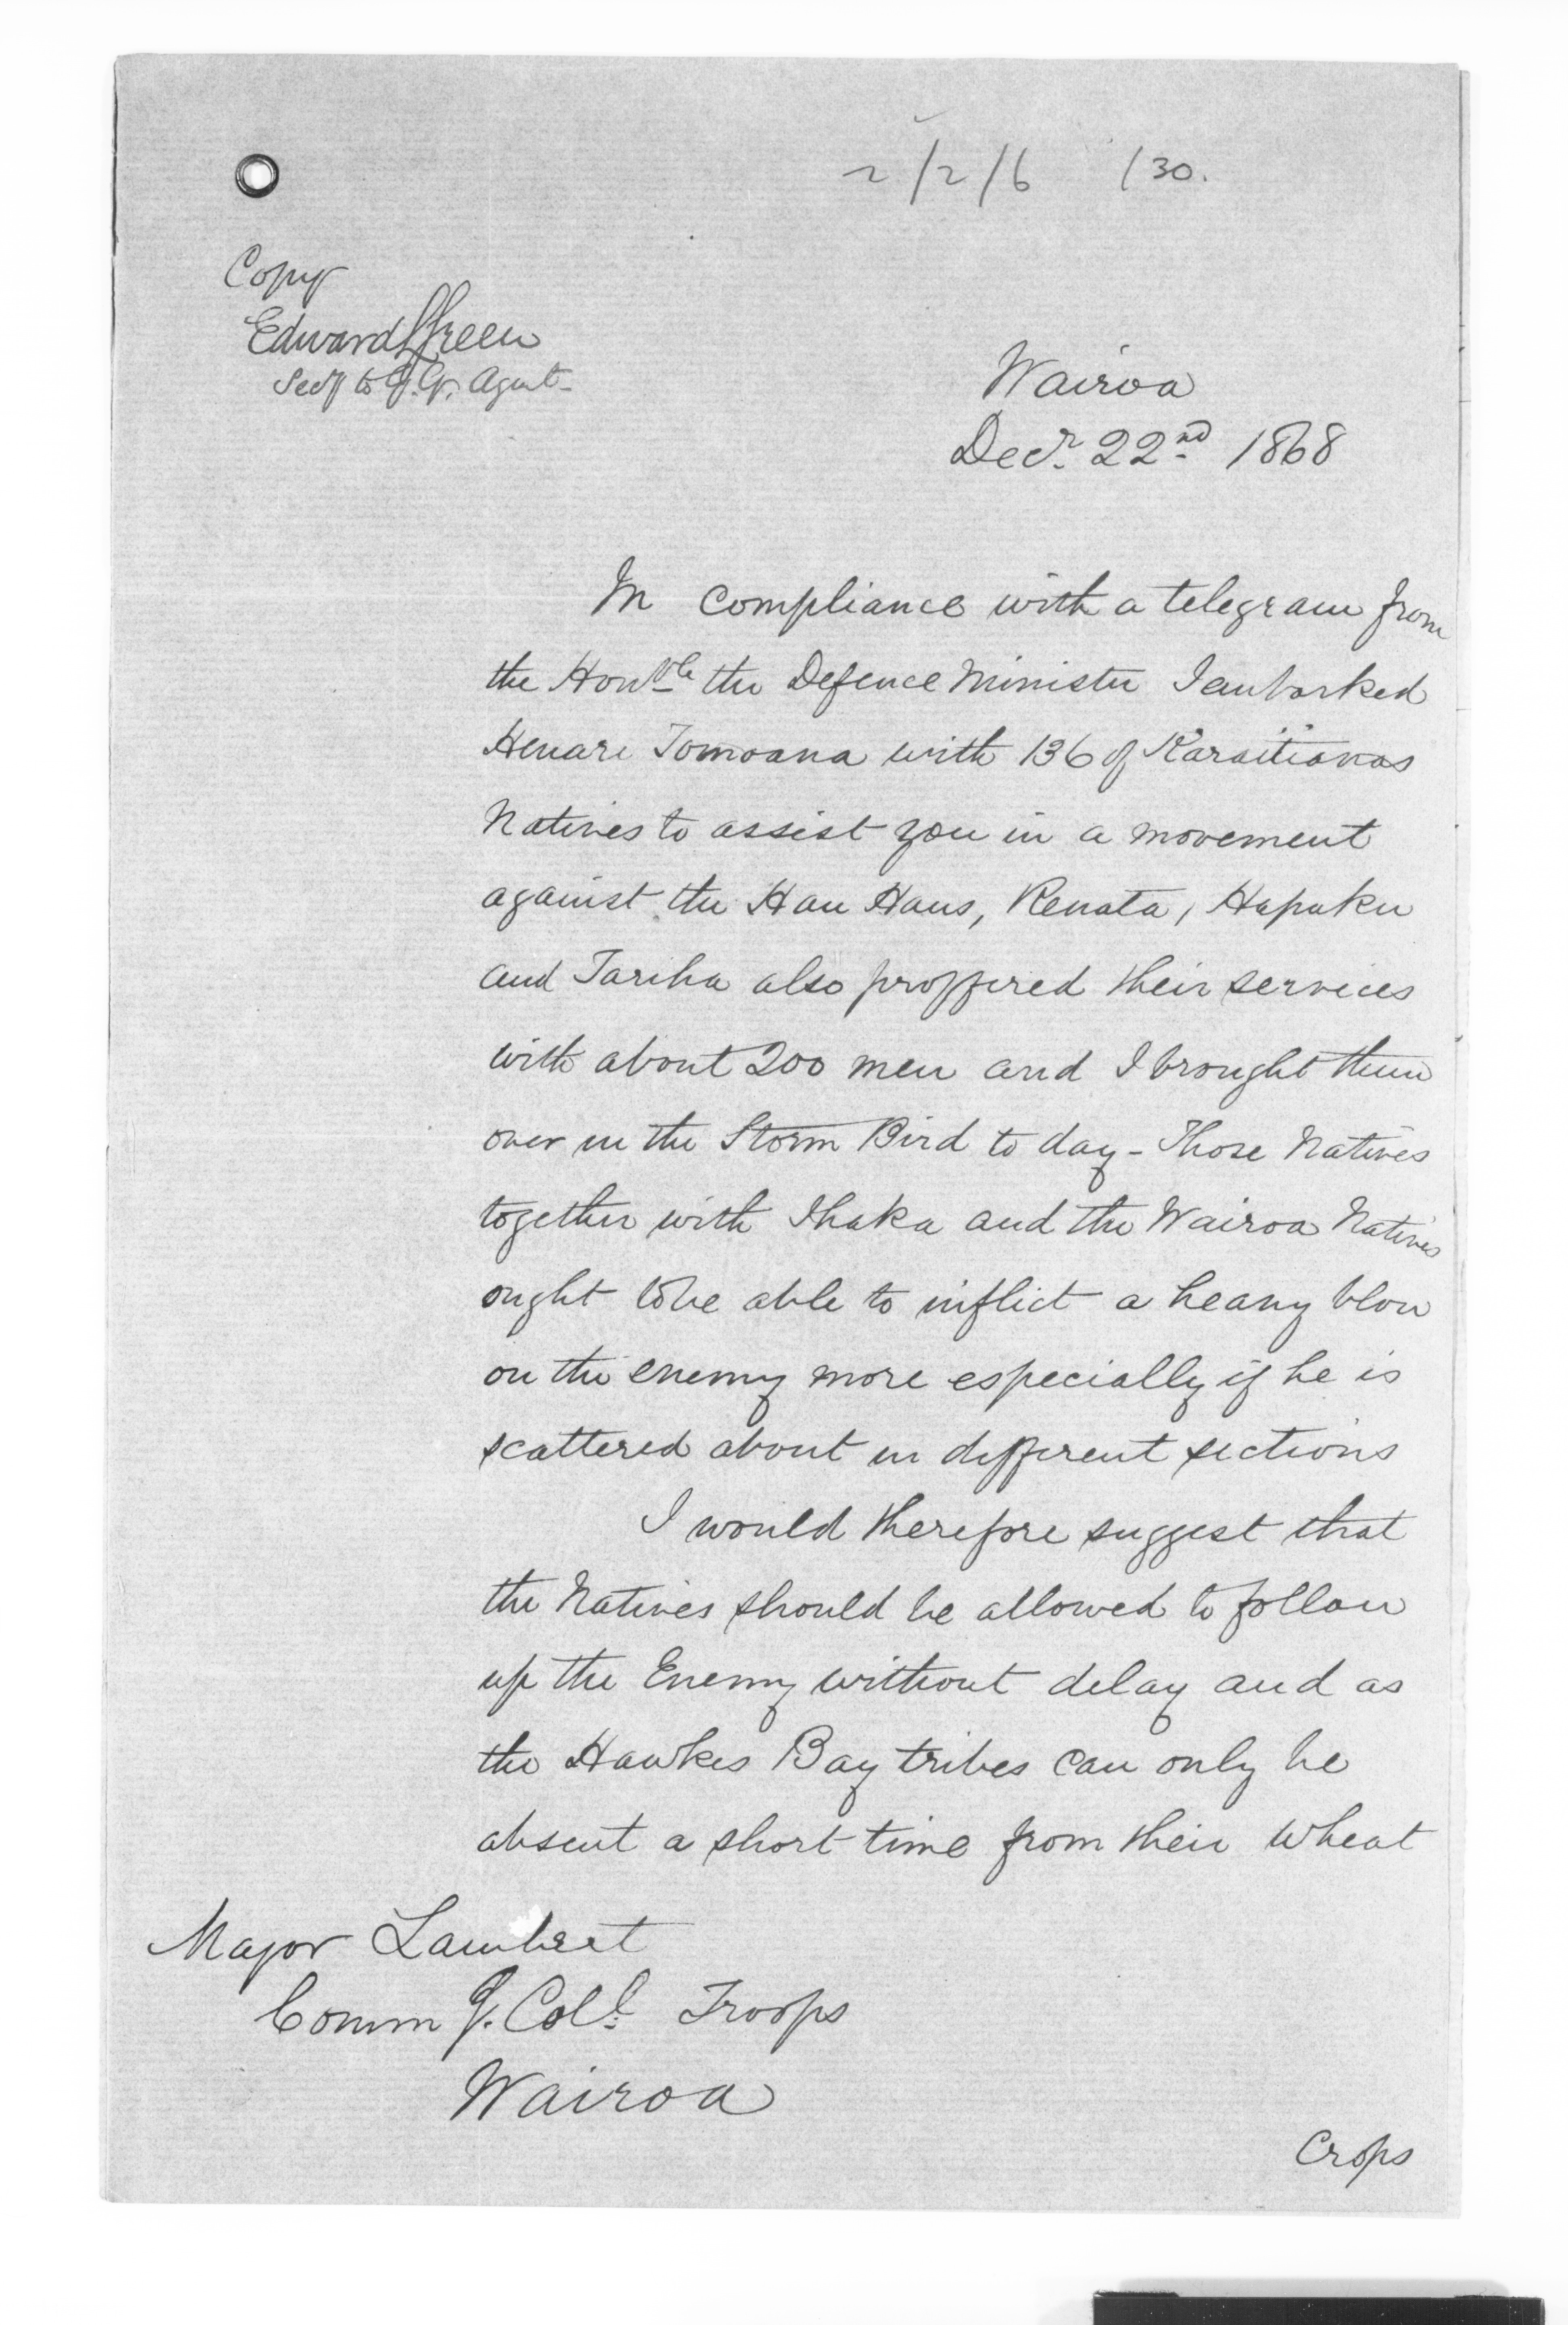 2/2/6 130.
Copy
Edward Green
Secy to G. G. Agent
Wairoa
Decr. 22nd 1868
In compliance with a telegram from
the Honble the Defence Minister I embarked
Henare Tomoana with 136 of Karaitianas
Natives to assist you in a movement
against the Hau Haus, Renata, Hapuku
and Tariha also proffered their services
with about 200 men and I brought them
over in the Storm Bird to day - Those Natives
together with Ihaka and the Wairoa Natives
ought to be able to inflict a heavy blow
on the enemy more especially if he is
scattered about in different sections
I would therefore suggest that
the Natives should be allowed to follow
up the Enemy without delay and as
the Hawkes Bay tribes can only be
absent a short time from their wheat
Major Lambert
Comm g. Coll. Troops
Wairoa
Crops